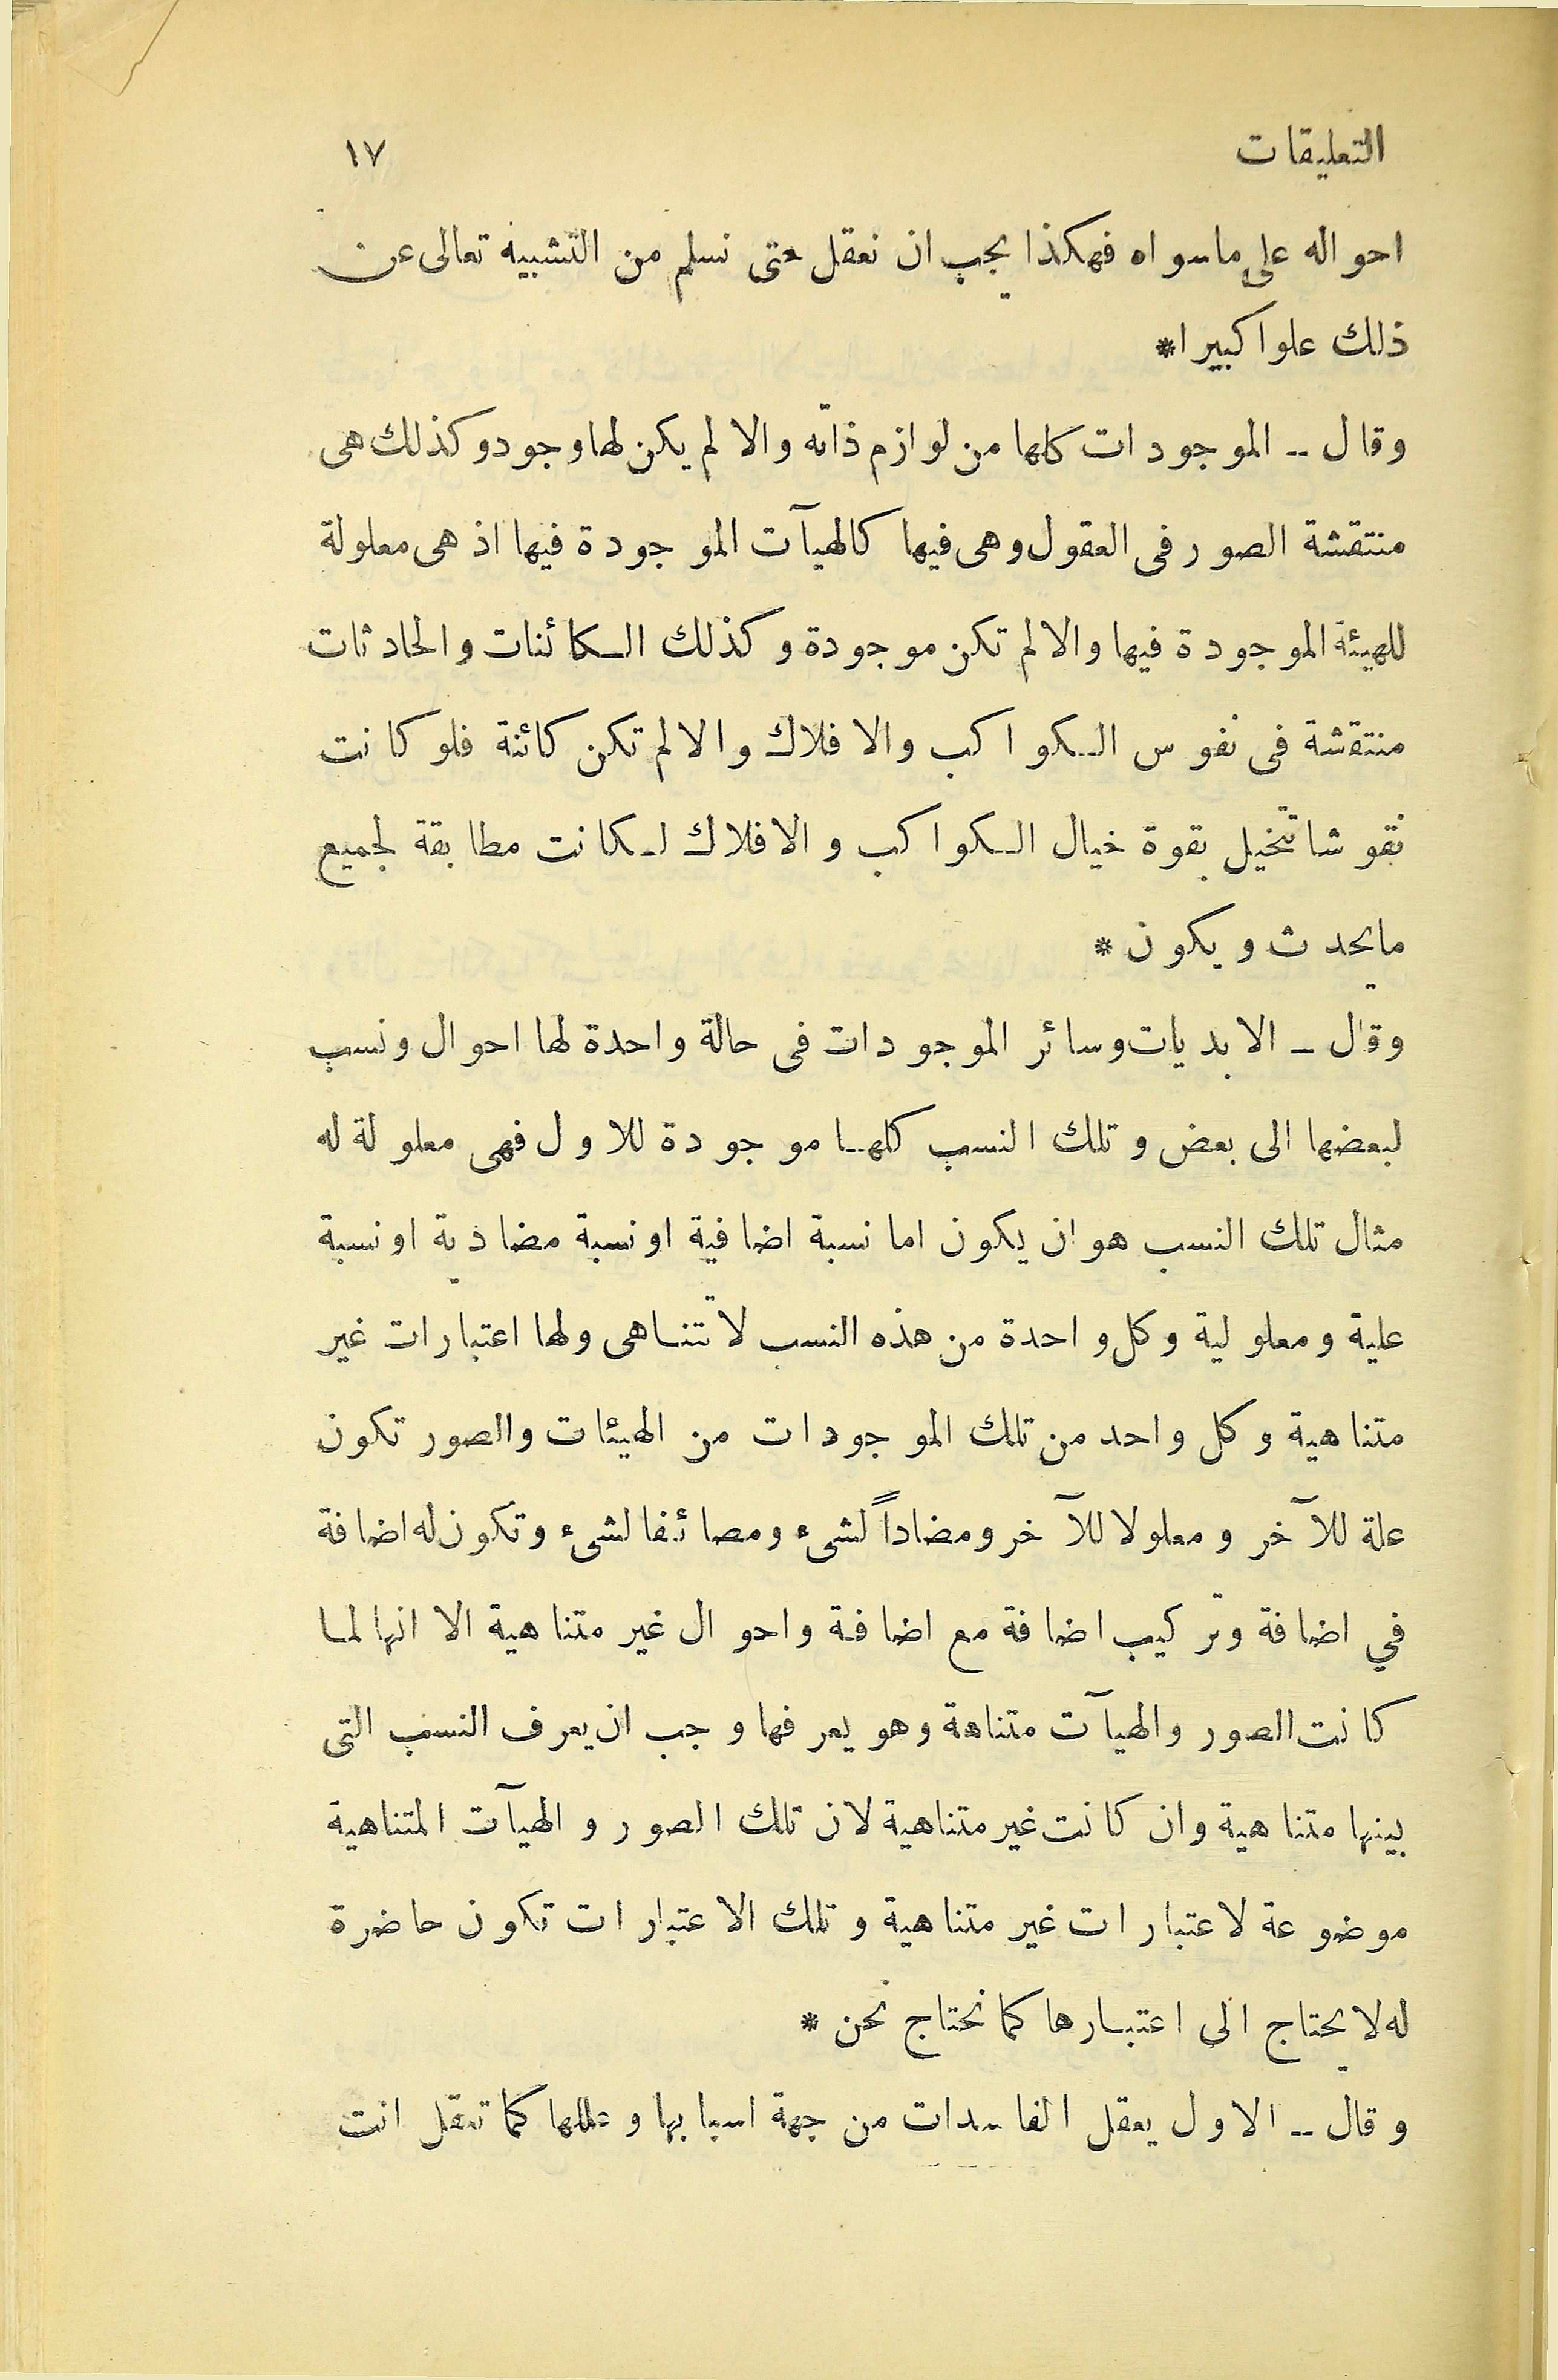 التعليقات ١٧
احواله على ماسواه فهكذا يجب ان نعقل حتى نسلم من التشبيه تعالى عن
ذلك علوا كبيرا*
وقال -- الموجودات كلها من لوازم ذاته والا لم يكن لها وجود وكذلك هى
منتقشة الصور فى العقول وهى فيها كالهيآت الموجودة فيها اذ هى معلولة
للهيئة الموجودة فيها والا لم تكن موجودة وكذلك الكائنات والحادثات
منتقشة فى نفوس الكواكب والافلاك والا لم تكن كائنة فلو كانت
نقوشا تتخيل بقوة خيال الكواكب والافلاك لكانت مطابقة لجميع
مايحدث ويكون *
وقال - الابديات وسائر الموجودات فى حالة واحدة لها احوال ونسب
لبعضها الى بعض وتلك النسب كلها موجودة للاول فهى معلولة له
مثال تلك النسب هو ان يكون اما نسبة اضافية او نسبة مضادية او نسبة
علية ومعلولية وكل واحدة من هذه النسب لا تتناهى ولها اعتبارات غير
متناهية وكل واحد من تلك الموجودات من الهيئات والصور تكون
علة للآخر ومعلولا للآخر ومضاداً لشىء ومصائفا لشىء وتكون له اضافة
في اضافة وتركيب اضافة مع اضافة واحوال غير متناهية الا انها لما
كانت الصور والهيآت متناهة وهو يعرفها وجب ان يعرف النسب التى
بينها متناهية وان كانت غير متناهية لان تلك الصور والهيآت المتناهية
موضوعة لاعتبارات غير متناهية وتلك الاعتبارات تكون حاضرة
له لا يحتاج الى اعتبارها كما نحتاج نحن *
وقال -- الاول يعقل الفاسدات من جهة اسبابها وعللها كما تعقل انت